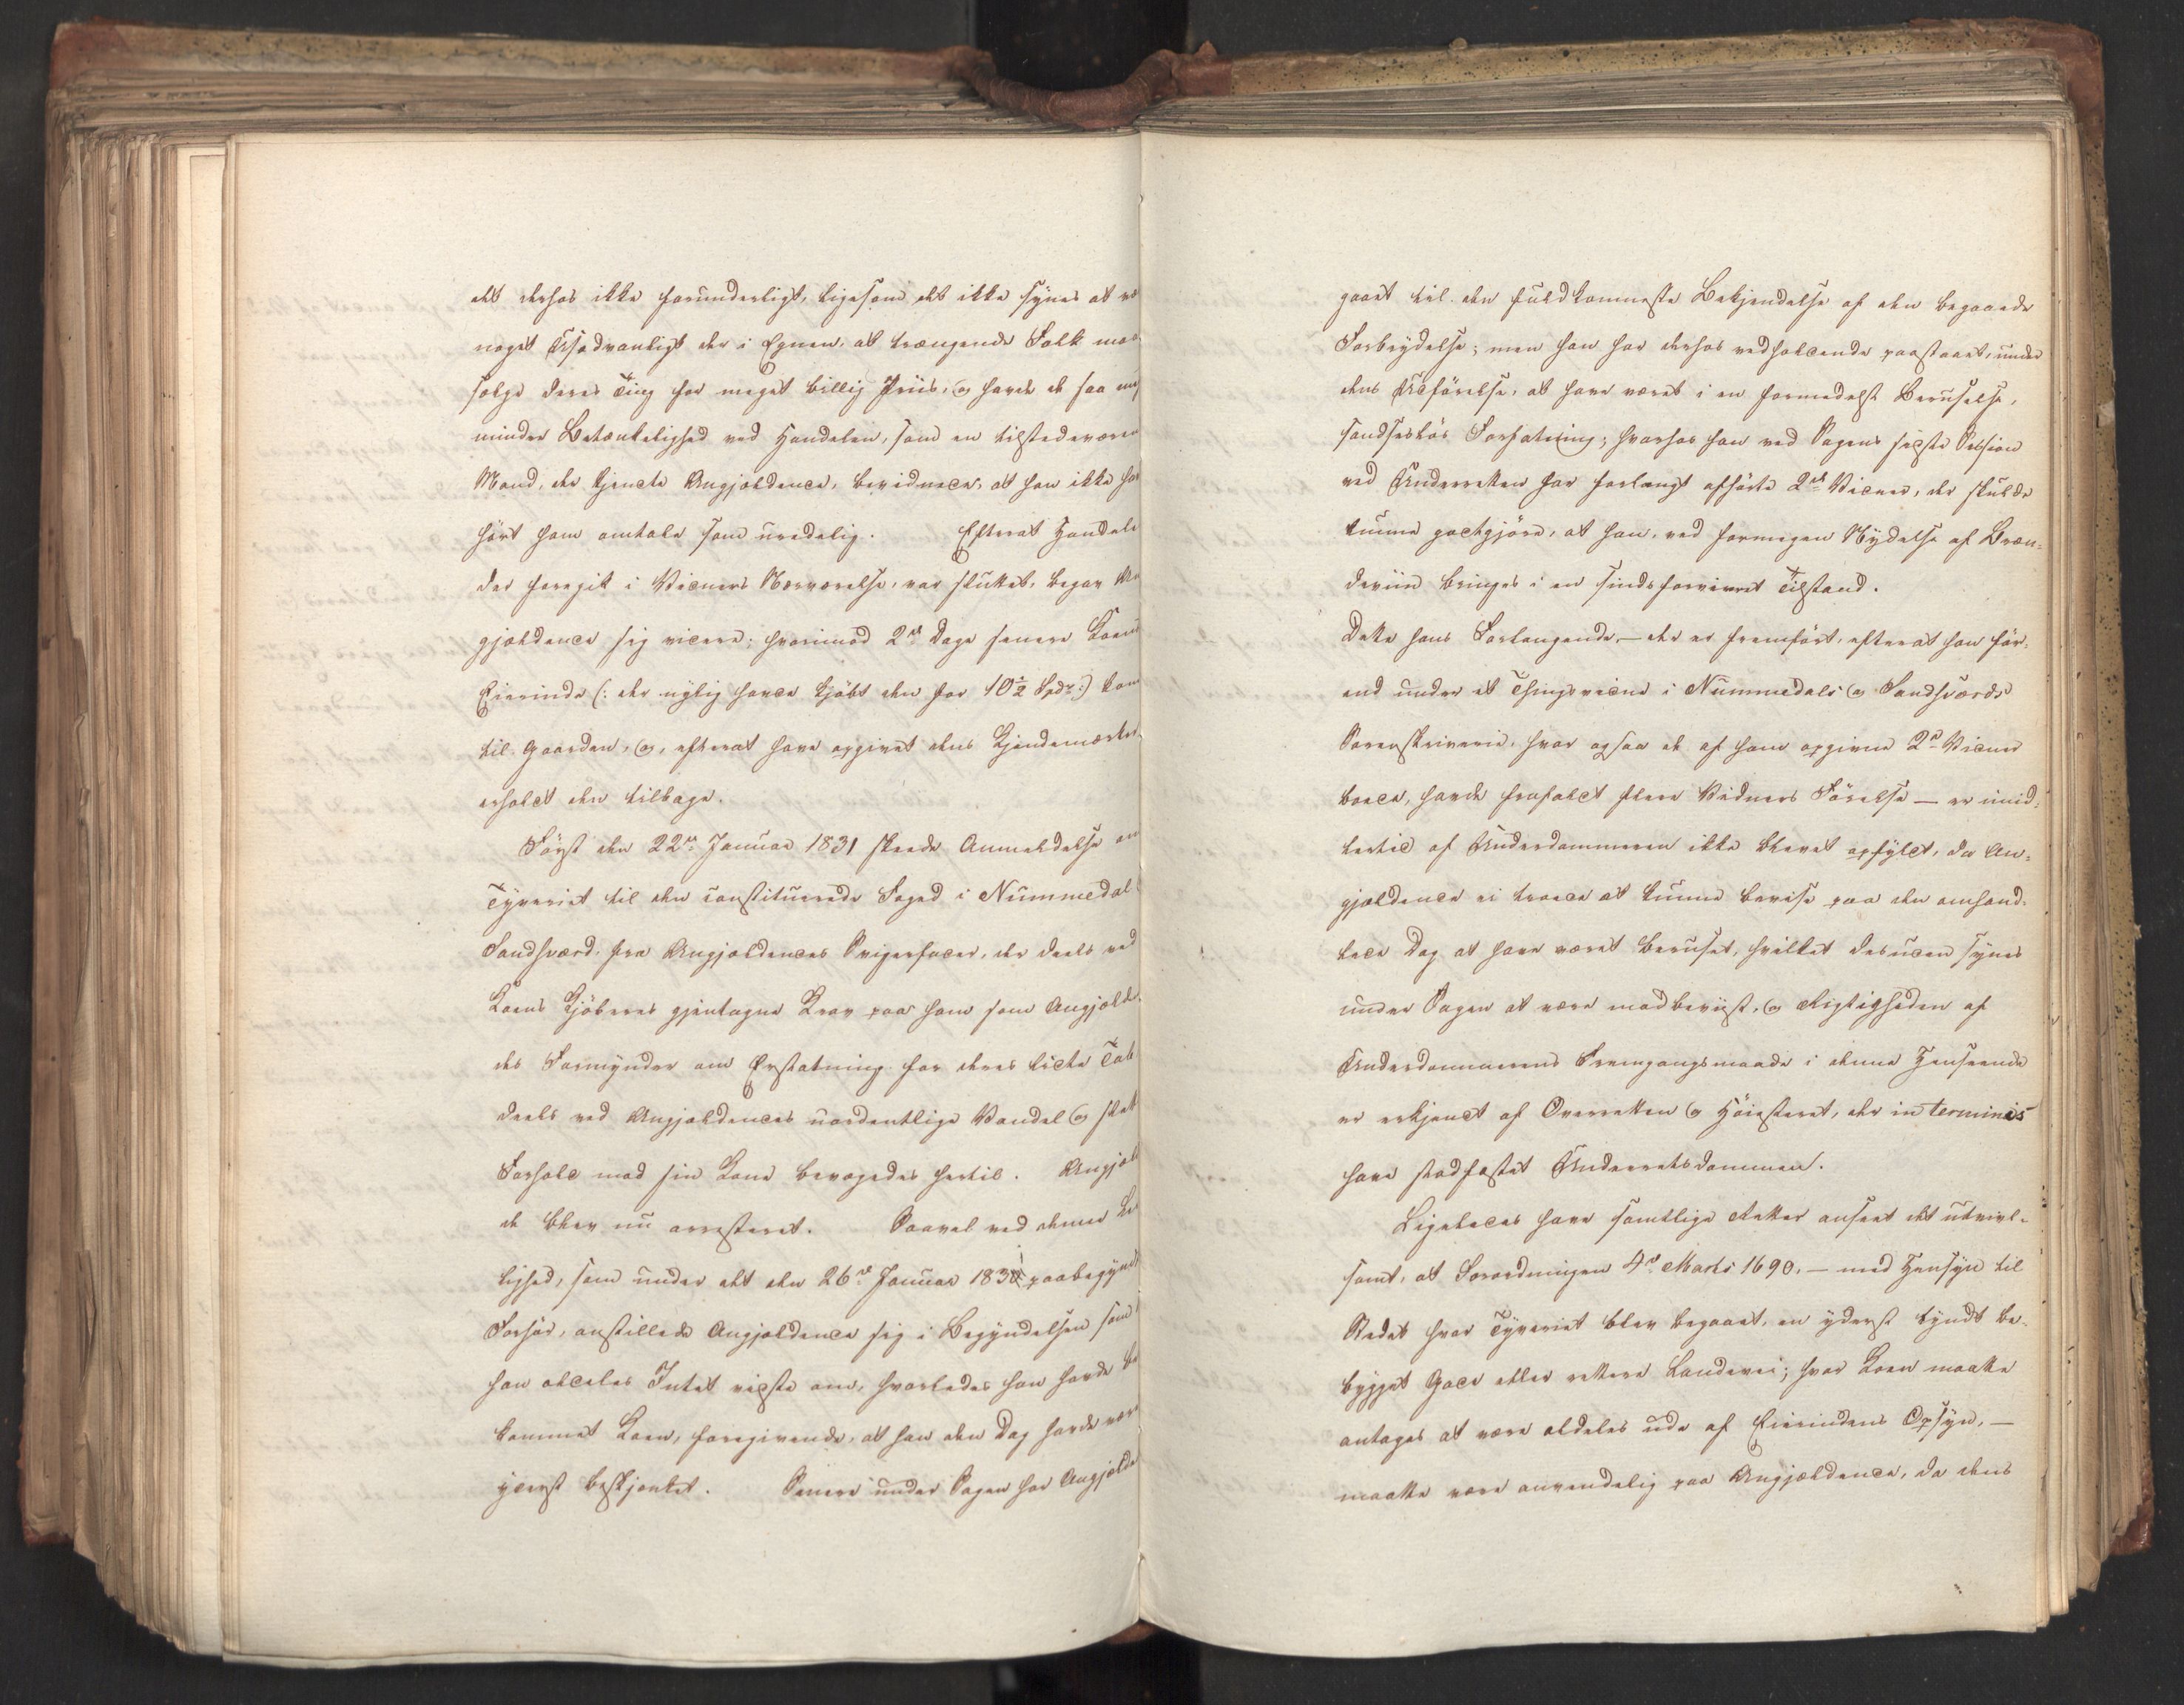 det derhos ikke forunderligt, ligesom det ikke synes at væ
noget Usædvanligt der i Egnen, at trængende Folk maa
sælge deres Ting for meget billig Priis, og havde de saa meg
mindre Betænkelighed ved Handelen, som en tilstedeværen
Mand, der kjendte Angjældende, bevidnede, at han ikke hav
hørt ham omtale som uredelig. Efterat Handele
der foregik i Vidners Nærværelse, var sluttet, begav An
gjældende sig videre; hvorimod 2de Dage senere Koens
Eierinde (: der nylig havde kjøbt den for 10½ Spdr:) kom
til Gaarden, og, efterat have opgivet dens Kjendemærker,
erholdt den tilbage.
Først den 22de Januar 1831 skeede Anmeldelse om
Tyveriet til den constituerede Foged i Nummedal
Sandsværd, fra Angjældendes Svigerfader, der deels ved
Koens Kjøberes gjentagne Krav paa ham som Angjælden
des Formynder om Erstatning for deres lidte Tab
deels ved Angjældendes uordentlige Vandel og slet
Forhold mod sin Kone bevægedes hertil. Angjæld
de blev nu arresteret. Saavel ved denne Lei
lighed, som under det den 26de Januar 1831 paabegyndt
Forhør, anstillede Angjældende sig i Begyndelsen som
han aldeles Intet vidste om, hvorledes han havde be
kommet Koen, foregivende, at han den Dag havde være
yderst beskjenket. Senere under Sagen har Angjælde
gaaet til den fuldkomneste Bekjendelse af den begaaede
Forbrydelse; men han har derhos vedholdende paastaaet, under
dens Udførelse, at have været i en formedelst Beruselse,
sandsesløs Forfatning; hvorhos han ved Sagens sidste Session
ved Underretten har forlangt afhørte 2de Vidner, der skulde
kunne godtgjøre, at han, ved formegen Nydelse af Bræn=
deviin bringes i en sindsforvirret Tilstand.
Dette hans Forlangende, — der er fremført, efterat han før=
end under et Thingsvidne i Nummedals og Sandsværds
Sorenskriverie, hvor ogsaa de af ham opgivne 2de Vidner
boede, havde frafaldt flere Vidners Førelse — er imid=
lertid af Underdommeren ikke blevet opfyldt, da An=
gjældende ei troede at kunne bevise paa den omhand=
lede Dag at have været beruset, hvilket desuden synes
under Sagen at være modbeviist, og Rigtigheden af
Underdommerens Fremgangsmaade i denne Henseende
er erkjendt af Overretten og Høiesteret, der in terminis
have stadfæstet Underretsdommen.
Ligeledes have samtlige Retter anseet det utvivl=
somt, at Forordningen 4de Marts 1690, — med Hensyn til
Stedet hvor Tyveriet blev begaaet, en yderst tyndt be=
bygget Gade eller rettere Landevei; hvor Koen maatte
antages at være aldeles ude af Eierindens Opsyn, —
maatte være anvendelig paa Angjældende, da dens